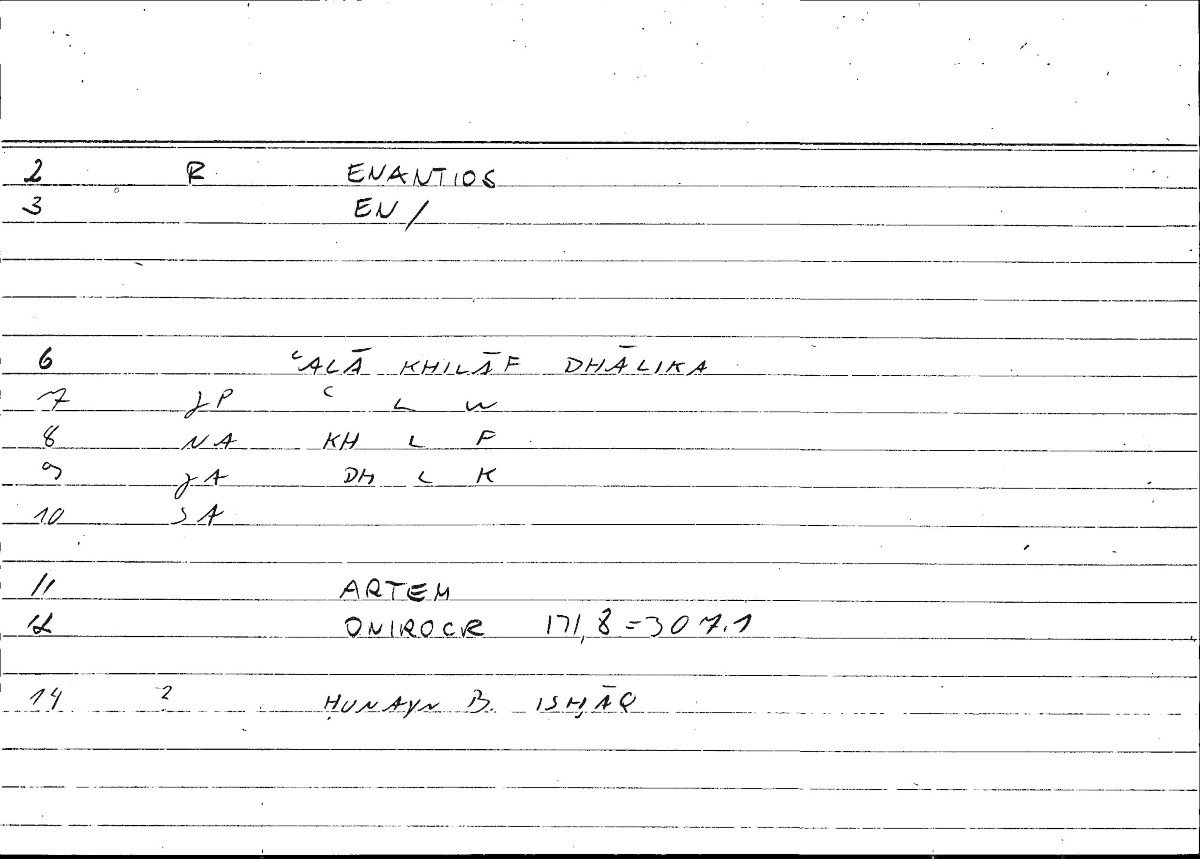 2 R ENANTIOS
3 EN /
6 ʿALĀ KHILĀF DHĀLIKA
7 JP ʿ L W
8 NA KH L F
9 JA DH L K
10 SA
11 ARTEM
12 ONIROCR 171,8=307.1
14 2 ḤUNAYN B. ISḤĀQ